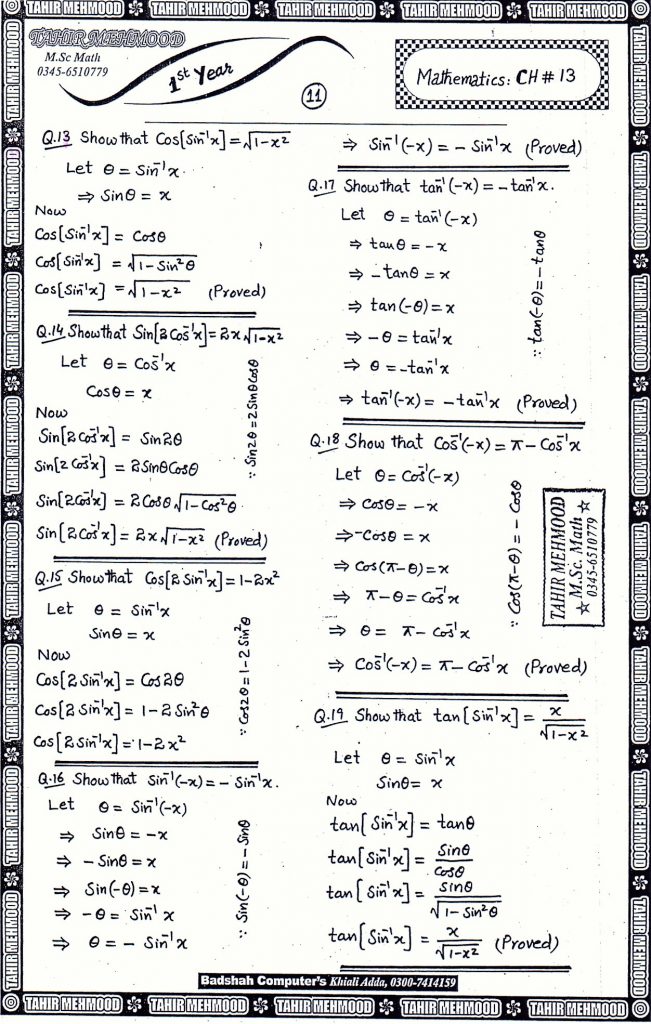 TAHIR MEHMOOD TAHIR MEHMOOD TAHIR MEHMOOD TAHIR MEHMOOD TAHIR MEHMOOD
TAHIR MEHMOOD
M.Sc Math
0345-6510779
1st Year
11
Mathematics: CH # 13
Q.13 Show that Cos[Sin⁻¹x] = √1-x²
Let θ = Sin⁻¹x
⇒ Sinθ = x
Now
Cos[Sin⁻¹x] = Cosθ
Cos[Sin⁻¹x] = √1-Sin²θ
Cos[Sin⁻¹x] = √1-x² (Proved)
Q.14 Show that Sin[2Cos⁻¹x] = 2x√1-x²
Let θ = Cos⁻¹x
Cosθ = x
Now
Sin[2Cos⁻¹x] = Sin2θ
Sin[2Cos⁻¹x] = 2SinθCosθ
Sin[2Cos⁻¹x] = 2Cosθ√1-Cos²θ
Sin[2Cos⁻¹x] = 2x√1-x² (Proved)
∵ Sin2θ = 2SinθCosθ
Q.15 Show that Cos[2Sin⁻¹x] = 1-2x²
Let θ = Sin⁻¹x
Sinθ = x
Now
Cos[2Sin⁻¹x] = Cos2θ
Cos[2Sin⁻¹x] = 1-2Sin²θ
Cos[2Sin⁻¹x] = 1-2x²
∵ Cos2θ = 1-2Sin²θ
Q.16 Show that Sin⁻¹(-x) = - Sin⁻¹x.
Let θ = Sin⁻¹(-x)
⇒ Sinθ = -x
⇒ -Sinθ = x
⇒ Sin(-θ) = x
⇒ -θ = Sin⁻¹x
⇒ θ = - Sin⁻¹x
∵ Sin(-θ) = - Sinθ
⇒ Sin⁻¹(-x) = - Sin⁻¹x (Proved)
Q.17 Show that tan⁻¹(-x) = -tan⁻¹x.
Let θ = tan⁻¹(-x)
⇒ tanθ = -x
⇒ -tanθ = x
⇒ tan(-θ) = x
⇒ -θ = tan⁻¹x
⇒ θ = -tan⁻¹x
⇒ tan⁻¹(-x) = -tan⁻¹x (Proved)
∵ tan(-θ) = - tanθ
Q.18 Show that Cos⁻¹(-x) = π - Cos⁻¹x
Let θ = Cos⁻¹(-x)
⇒ Cosθ = -x
⇒ -Cosθ = x
⇒ Cos(π-θ) = x
⇒ π-θ = Cos⁻¹x
⇒ θ = π - Cos⁻¹x
⇒ Cos⁻¹(-x) = π - Cos⁻¹x (Proved)
∵ Cos(π-θ) = - Cosθ
TAHIR MEHMOOD
M.Sc. Math
☆ 0345-6510779 ☆
Q.19 Show that tan[Sin⁻¹x] = x/√1-x²
Let θ = Sin⁻¹x
Sinθ = x
Now
tan[Sin⁻¹x] = tanθ
tan[Sin⁻¹x] = Sinθ/Cosθ
tan[Sin⁻¹x] = Sinθ/√1-Sin²θ
tan[Sin⁻¹x] = x/√1-x² (Proved)
Badshah Computer's Khiali Adda, 0300-7414159
TAHIR MEHMOOD TAHIR MEHMOOD TAHIR MEHMOOD TAHIR MEHMOOD TAHIR MEHMOOD